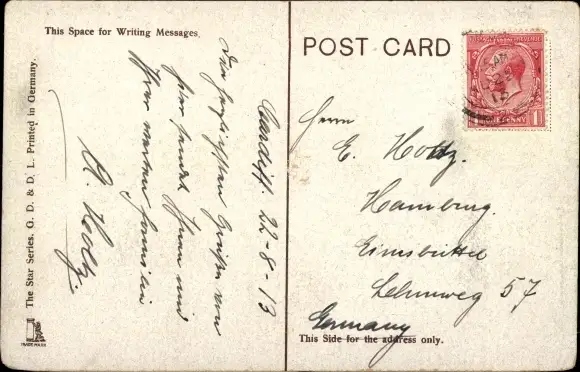 This Space for Writing Messages.
Cardiff. 22-8-13
Die herzlichsten Grüßen von
hier sendet Ihnen und
Ihrer werten Familie
A. Holtz.
The Star Series. G. D. & D. L. Printed in Germany.
TRADE MARK
POST CARD
PENNY
1
Herrn
E. Holtz.
Hamburg.
Eimsbüttel
Lehmweg 57
Germany
This Side for the address only.